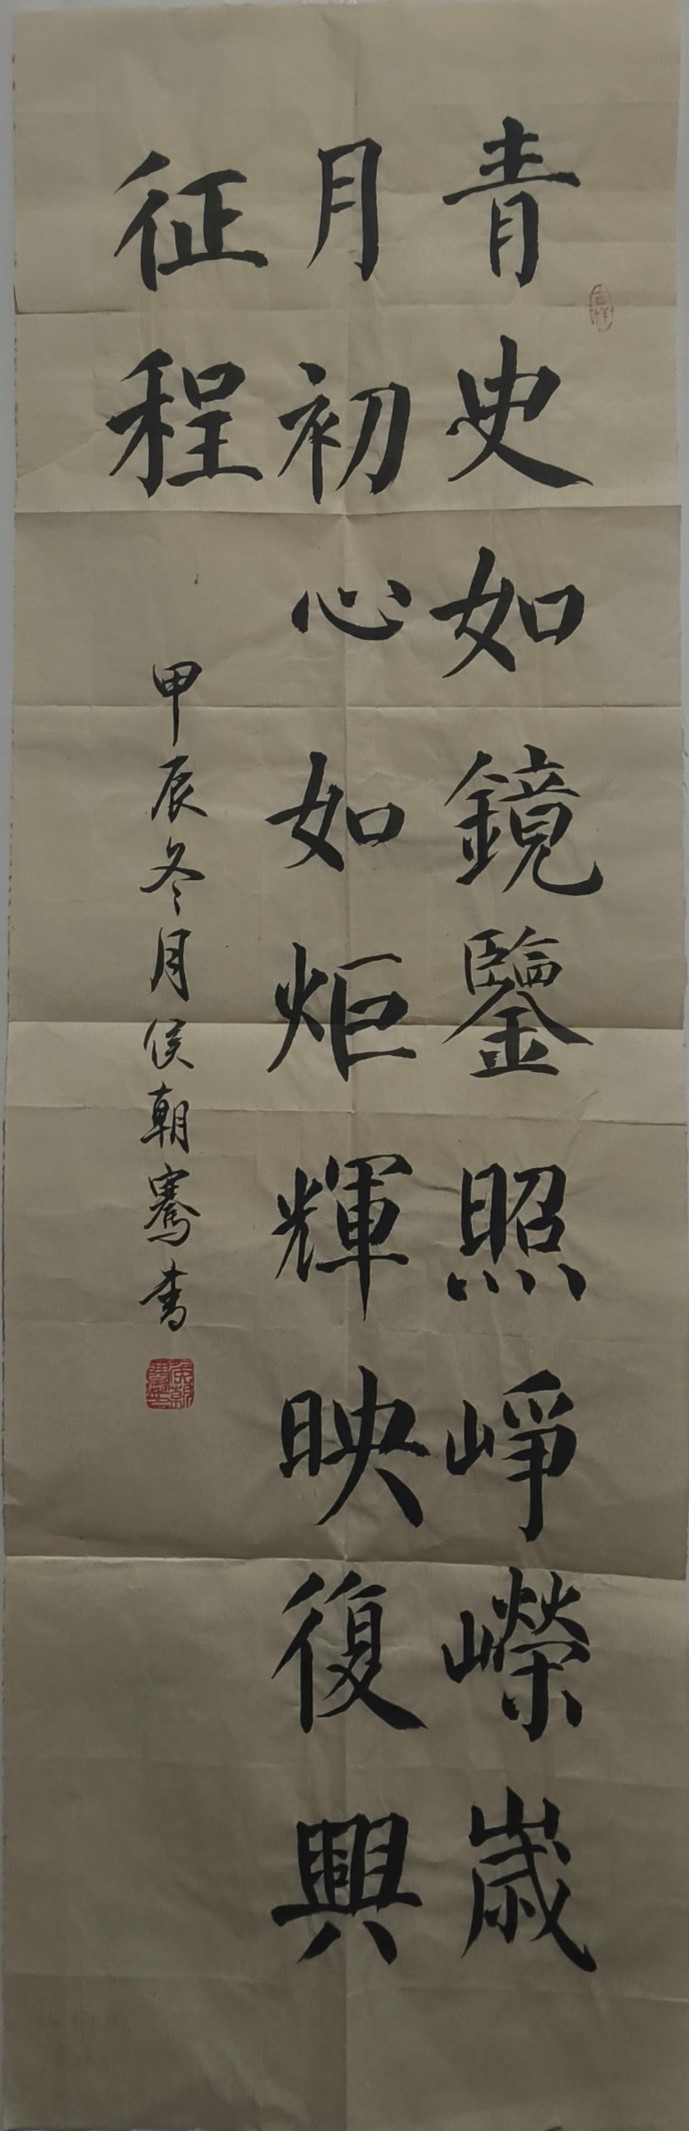 青史如鏡鑒照崢嶸歲
月初心如炬輝映復興
征程
甲辰冬月侯朝騫書